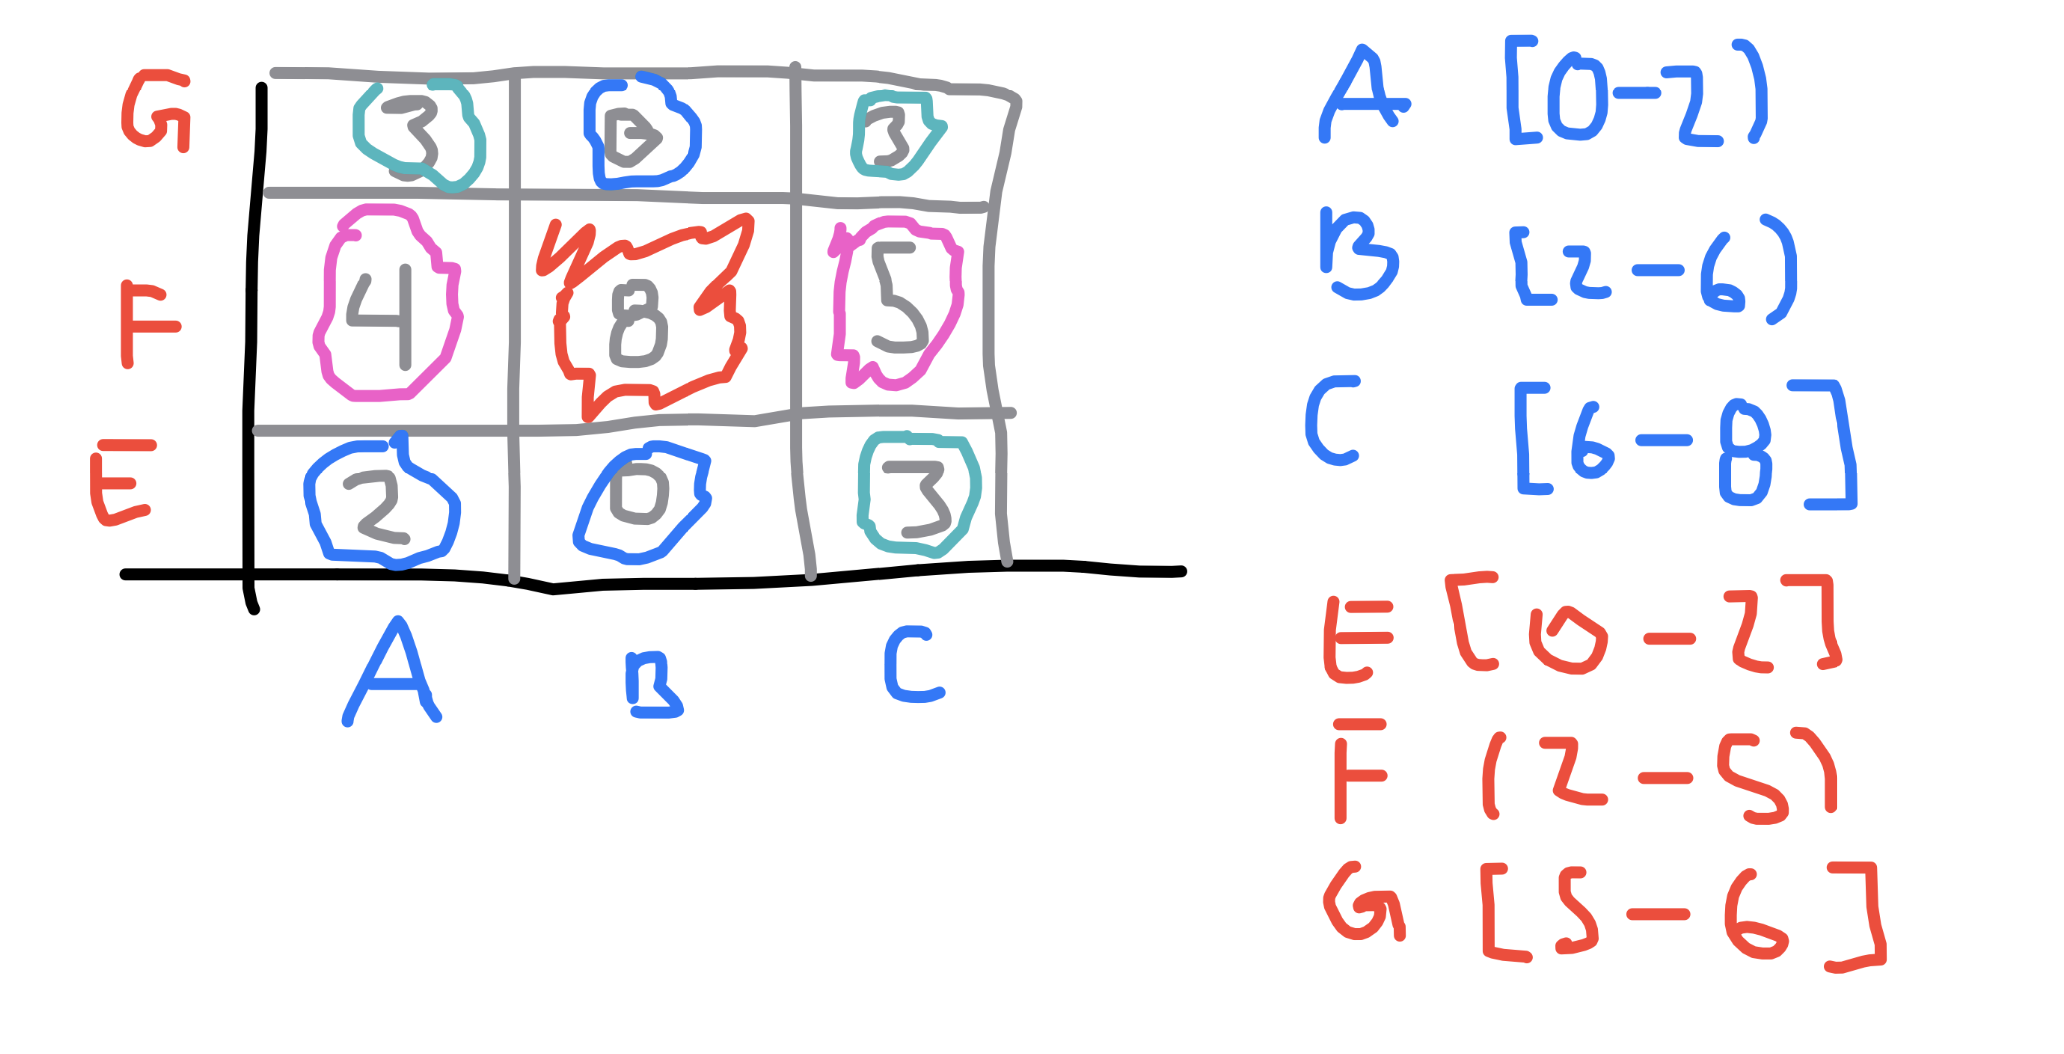 G 3 0 3
F 4 8 5
E 2 0 3
A B C
A [0-2)
B [2-6)
C [6-8]
E [0-2]
F (2-5)
G [5-6]